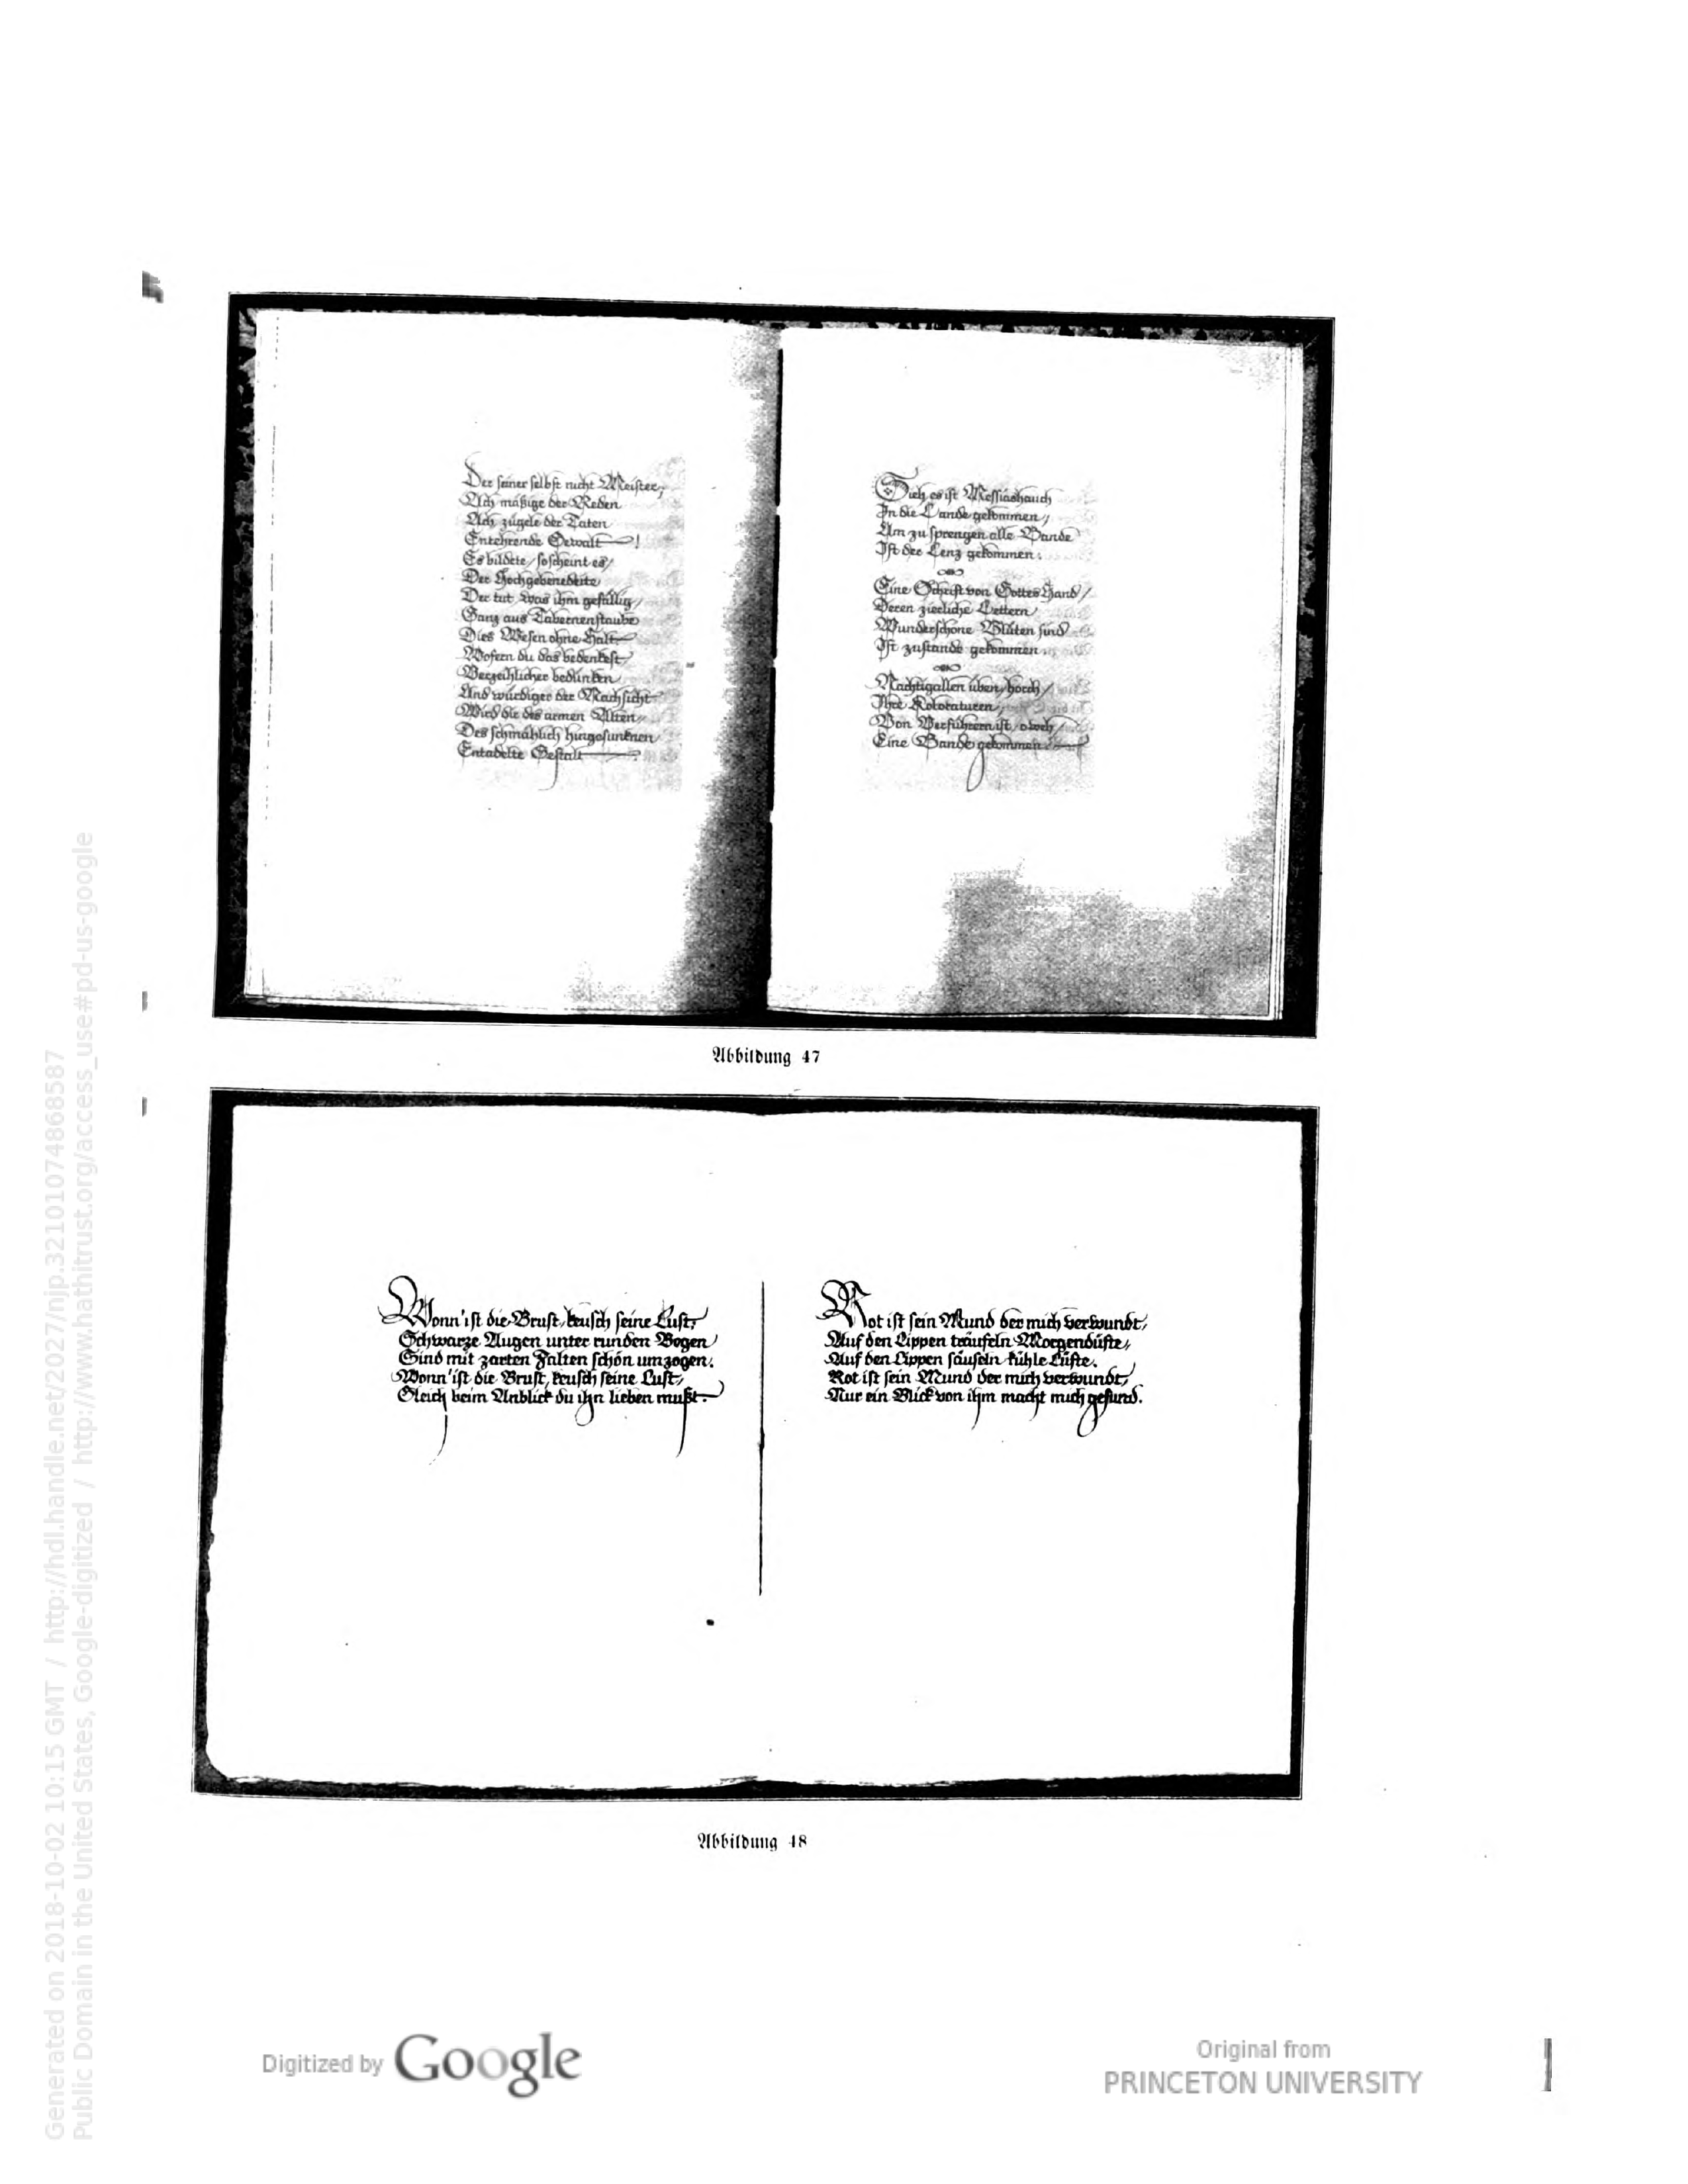 Der seiner selbst nicht Meister,
Ach mäßige der Reden
Ach zügele der Taten
Entehrende Gewalt!
Es bildete, so scheint es,
Der Hochgebenedeite
Der tut, was ihm gefällig,
Ganz aus Tabernenstaube
Dies Wesen ohne Halt
Wofern du das bedenkest,
Verzeihlicher bedünken,
Und würdiger der Nachsicht
Wird dir des armen Alten,
Des schmählich hingesunknen
Entadelte Gestalt
Sieh, es ist Messiashauch
In die Lande gekommen,
Um zu sprengen alle Bande
Ist der Lenz gekommen.
Eine Schrift von Gottes Hand,
Deren zierliche Lettern
Wunderschöne Blüten sind
Ist zustande gekommen.
Nachtigallen üben, horch,
Ihre Koloraturen,
Von Verführern ist, o weh,
Eine Bande gekommen
Abbildung 47
Wonn' ist die Brust, keusch seine Lust,
Schwarze Augen unter runden Bogen
Sind mit zarten Falten schön umzogen.
Wonn' ist die Brust, keusch seine Lust,
Gleich beim Anblick du ihn lieben mußt.
Rot ist sein Mund der mich verwundt,
Auf den Lippen träufeln Morgendüfte,
Auf den Lippen säuseln kühle Lüfte.
Rot ist sein Mund der mich verwundt,
Nur ein Blick von ihm macht mich gesund.
Abbildung 48
Digitized by Google
Original from
PRINCETON UNIVERSITY
Generated on 2018-10-02 10:15 GMT / http://hdl.handle.net/2027/njp.32101074868587
Public Domain in the United States, Google-digitized / http://www.hathitrust.org/access_use#pd-us-google